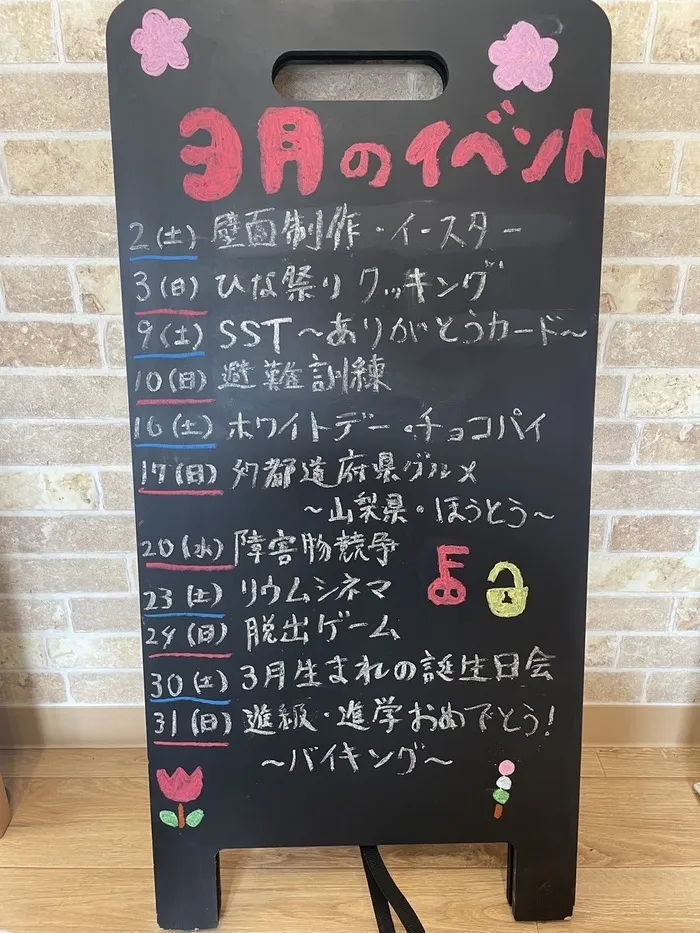 3月のイベント
2(土) 壁面制作・イースター
3(日) ひな祭りクッキング
9(土) SST～ありがとうカード～
10(日) 避難訓練
16(土) ホワイトデー・チョコパイ
17(日) 都道府県グルメ
～山梨県・ほうとう～
20(水) 障害物競争
23(土) リウムシネマ
24(日) 脱出ゲーム
30(土) 3月生まれの誕生日会
31(日) 進級・進学おめでとう!
～バイキング～